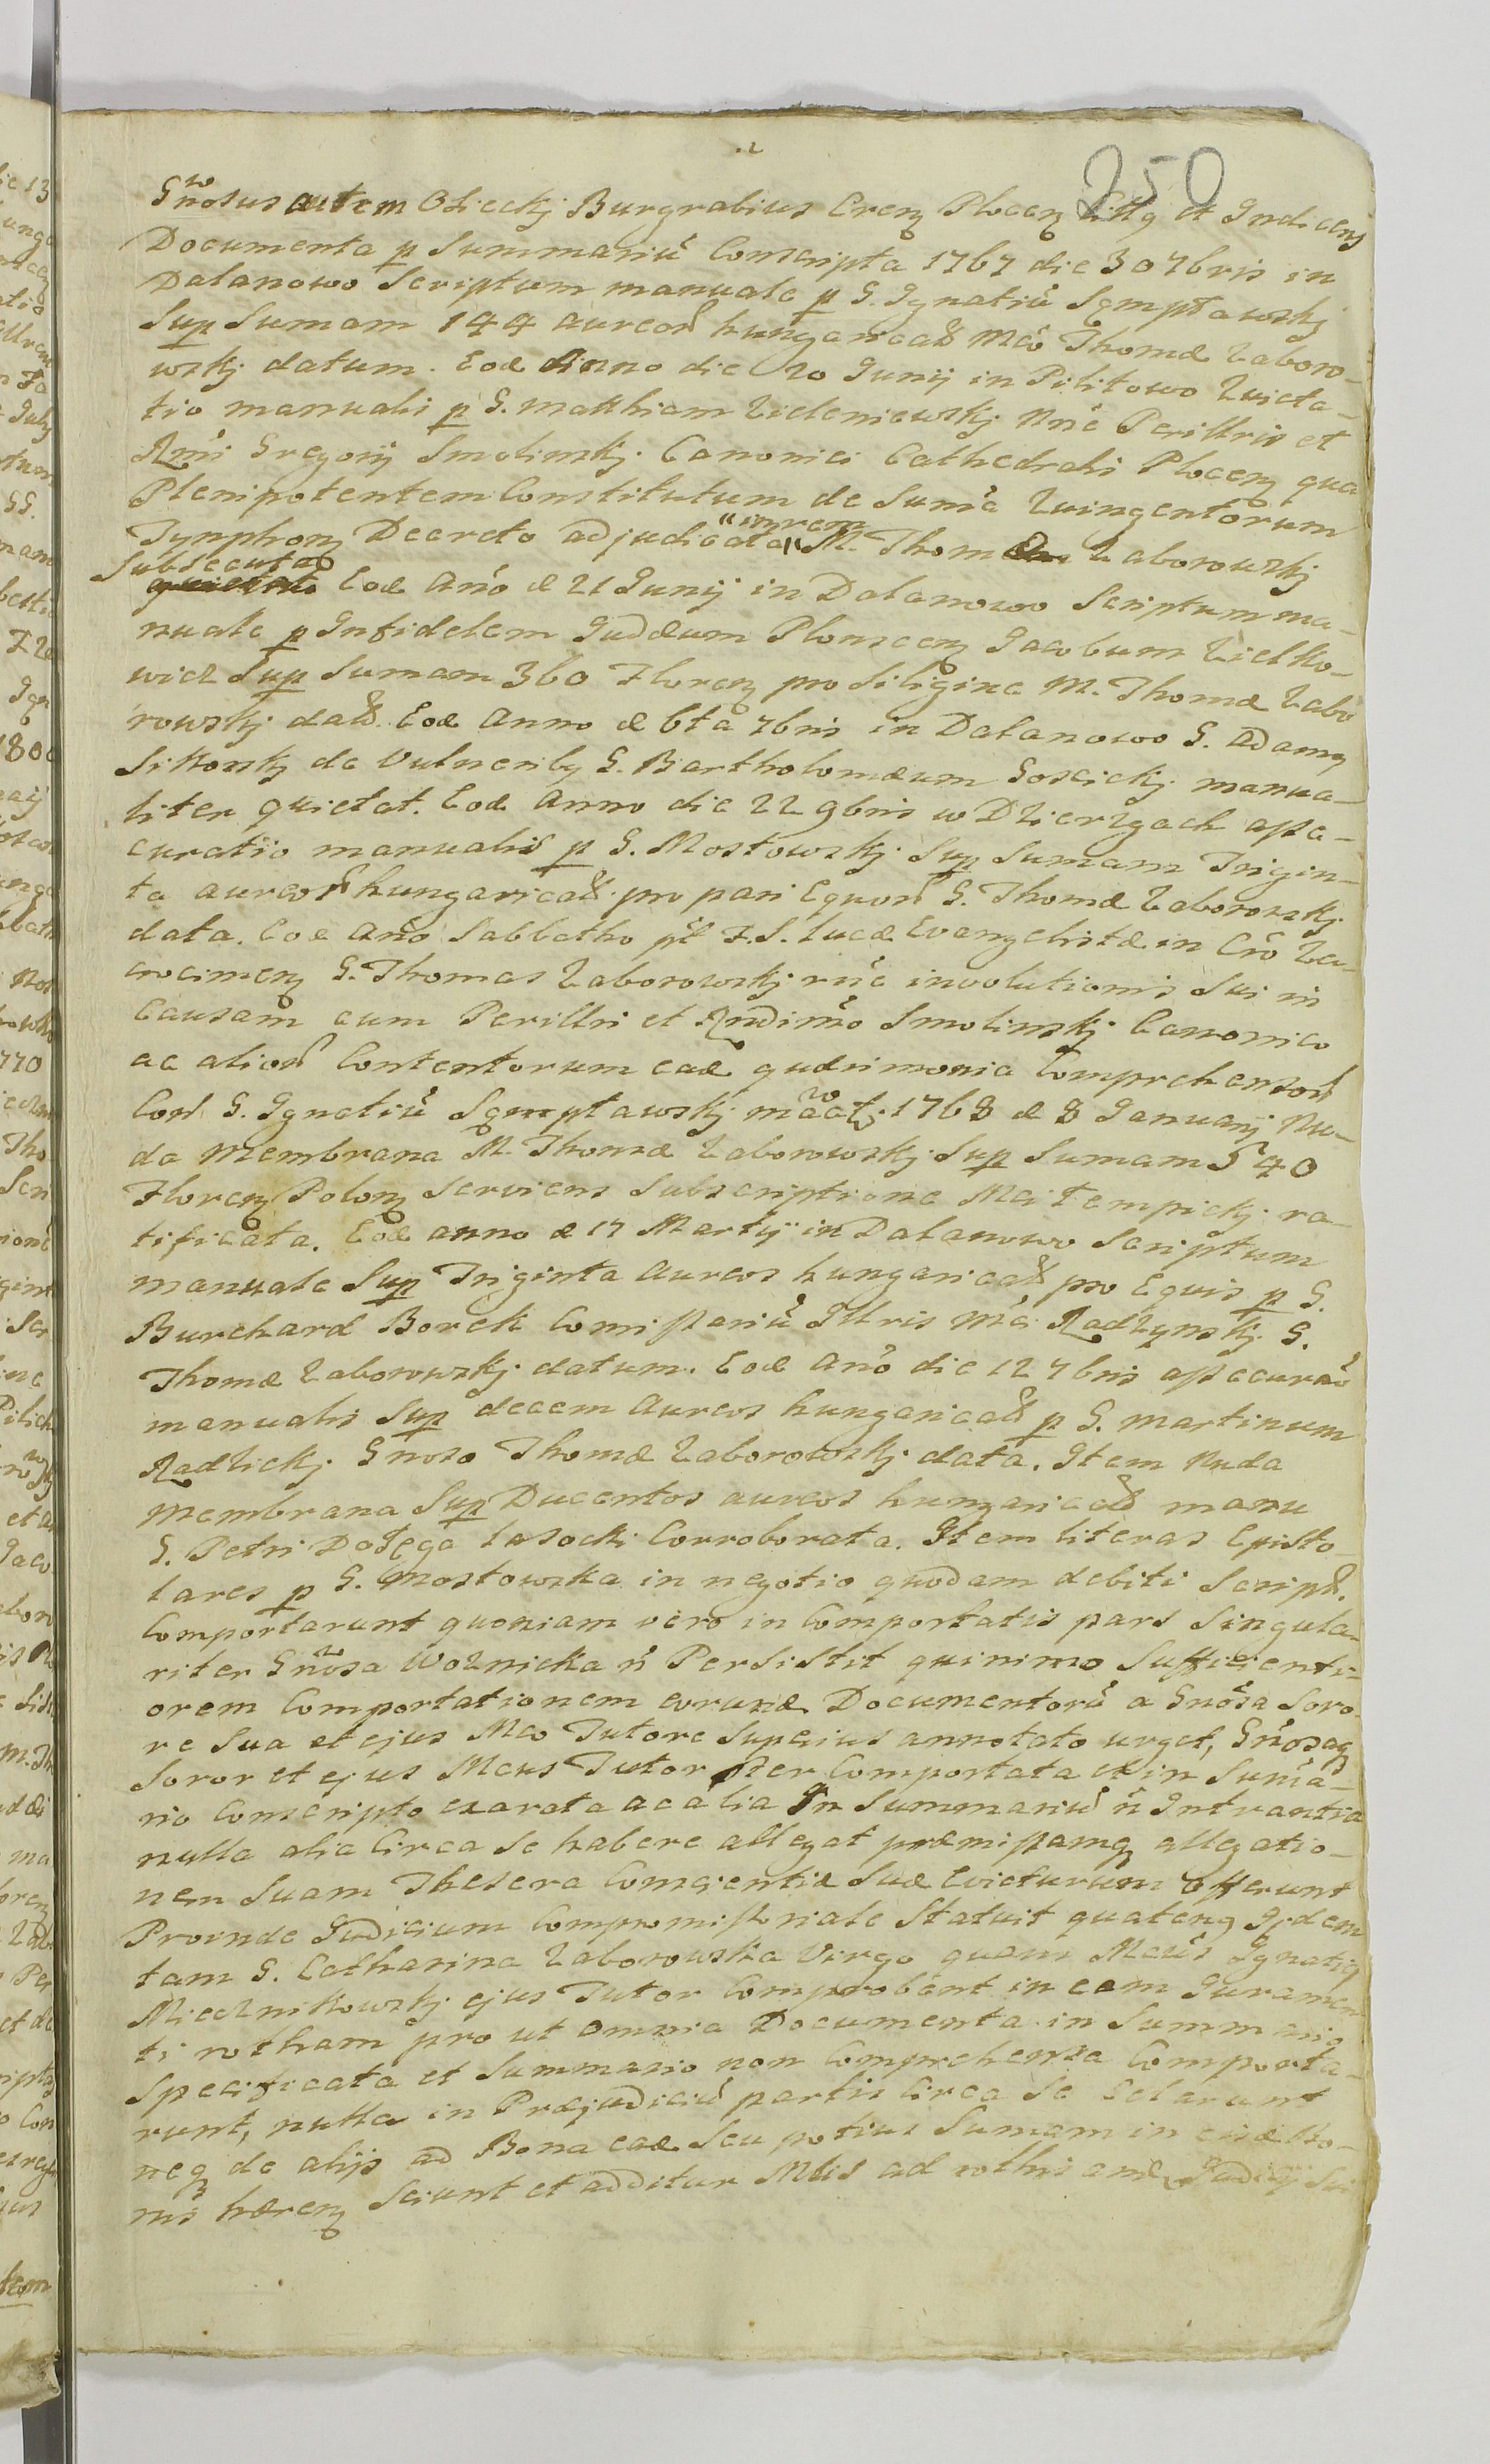 250
Gnosus autem Osieckj Burgrabius Crenz Plocenz et Indicens
Documenta p Summariũ Conscripta 1767 die 30 7bris in
Dalanowo Scriptum manuale p G. Ignatiũ Sęmpławskj
Sup Sumam 144 aureor hungarical Mco Thomæ Zaboro-
wskj datum. Eod Anno die 20 Junij in Pilitowo Quieta-
tio manuali p G. Matthiam Zieleniewskj nne Perillris et
Rmi Gregorij Smolinskj Canonici Cathedralis Plocenz qua
Plenipotentem Constitutum de Suma Quingentorum
Tynphonz Decreto adjudicata "in rem" M. Thomæ Zaborowskj
Subsecuta
Eod Ano d 21 Junij in Dalanowo Scriptum ma-
nuale p Infidelem Judæum Plonscenz Jacobum Zielko-
wicz Sup Sumam 360 Florenz pro Siligine M. Thomæ Zabo
rowskj dat. Eod Anno d 6ta 7bris in Dalanowo G. Adamq
Sikorskj de Vulneribq G. Bartholomæum Goscickj manua-
liter quietat. Eod Anno die 22 9bris w Dzierzgach asse-
curatio manualis p G. Mostowskj Sup Sumam Trigin-
ta aureor hungarical pro pari Equor G. Thomæ Zaborowskj
data. Eod Ano Sabbatho pt F. S. Lucæ Evangelistæ in Cro Za-
crocimenz G. Thomas Zaborowskj rne involutionis Sui in
Causam cum Perillri et Rndimo Smolinskj Canonico
ac alior Contentorum ead qudrimonia Comprehensor
Con G. Ignatiũ Sęmpławskj 1768 d 8 Januarij Nu-
da Membrana M. Thomæ Zaborowskj Sup Sumam 540
Florenz Polonz Serviens Subscriptione Mci Tempickj ra-
tificata. Eod anno d 17 Martij in Dalanowo Scriptum
manuale Sup Triginta Aureos hungarical pro Equis p G.
Burchard Borek Comissariũ Illris Mci Radzynskj G.
Thomæ Zaborowskj datum. Eod Ano die 12 7bris assecurao
manualis Sup decem Aureos hungarical p G. Martinum
Radzickj Gnoso Thomæ Zaborowskj data. Item Nuda
Membrana Sup Ducentos aureos hungarical manu
G. Petri Dołęga Lasocki Corroborata. Item literas Episto-
lares p G. Mostowska in negotio quodam debiti Script.
Comportarunt quoniam vero in Comportatis pars Singula-
riter Gnosa Woznicka ñ Persistit quinimo Sufficienti-
orem Comportationem eorund Documentorũ a Gnosa Soro-
re Sua et ejus Mco Tutore Superius annotato urget, Gnosaq
Soror et ejus Mcus Tutor ster Comportata et in Suma-
rio Conscripto exarata ac alia In Summariũ ñ Intrantia
nulla alia Circa Se habere allegat præmissamq allegatio-
nem Suam Thesera Comcientiæ Suæ Evicturum offerunt
Proinde Judicium Compromissoriale Statuit quatenq Ijdem
tam G. Catharina Zaborowska Virgo quam Mcus Ignatiq
Miecznikowskj ejus Tutor Comprobent in eam Juramen
ti rotham pro ut omnia Documenta in Summario
Specificata et Summario non Comprehensa Comporta-
runt, nulla in Præjudiciũ partis Circa Se Celarunt
neq de alijs ad Bona ead Seu potius Sumam in eisd Bo-
nis hærenz Sciunt et additur Mlis ad rothis Judicij Sui